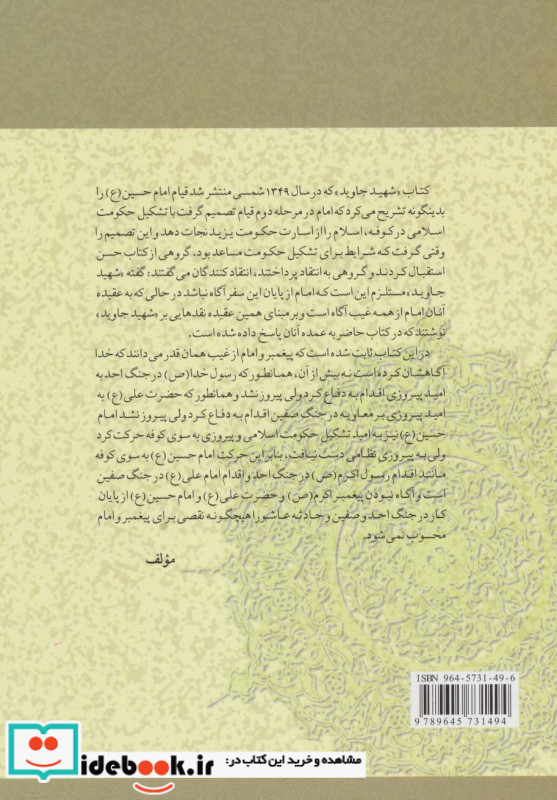 کتاب «شهید جاوید» که در سال ۱۳۴۹ شمسی منتشر شد قیام امام حسین (ع) را
بدینگونه تشریح می‌کرد که امام در مرحله دوم قیام تصمیم گرفت با تشکیل حکومت
اسلامی در کوفه، اسلام را از اسارت حکومت یزید نجات دهد و این تصمیم را
وقتی گرفت که شرایط برای تشکیل حکومت مساعد بود. گروهی از کتاب حسن
استقبال کردند و گروهی به انتقاد پرداختند، انتقادکنندگان می‌گفتند: گفته «شهید
جاوید» مستلزم این است که امام از پایان این سفر آگاه نباشد در حالی که به عقیدهٔ
آنان امام از همه غیب آگاه است و بر مبنای همین عقیده نقدهایی بر «شهید جاوید»
نوشتند که در کتاب حاضر به عمده آنان پاسخ داده شده است.
در این کتاب ثابت شده است که پیغمبر و امام از غیب همان قدر می‌دانند که خدا
آگاهشان کرده است نه بیش از آن، همانطور که رسول خدا (ص) در جنگ احد به
امید پیروزی اقدام به دفاع کرد ولی پیروز نشد و همانطور که حضرت علی (ع) به
امید پیروزی بر معاویه در جنگ صفین اقدام به دفاع کرد ولی پیروز نشد امام
حسین (ع) نیز به امید تشکیل حکومت اسلامی و پیروزی به سوی کوفه حرکت کرد
ولی به پیروزی نظامی دست نیافت، بنابر این حرکت امام حسین (ع) به سوی کوفه
مانند اقدام رسول اکرم (ص) در جنگ احد و اقدام امام علی (ع) در جنگ صفین
است و آگاه نبودن پیغمبر اکرم (ص) و حضرت علی (ع) و امام حسین (ع) از پایان
کار در جنگ احد و صفین و حادثه عاشورا هیچگونه نقصی برای پیغمبر و امام
محسوب نمی‌شود.
مؤلف
ISBN 964-5731-49-6
9 789645 731494
idebook.ir
مشاهده و خرید این کتاب در: